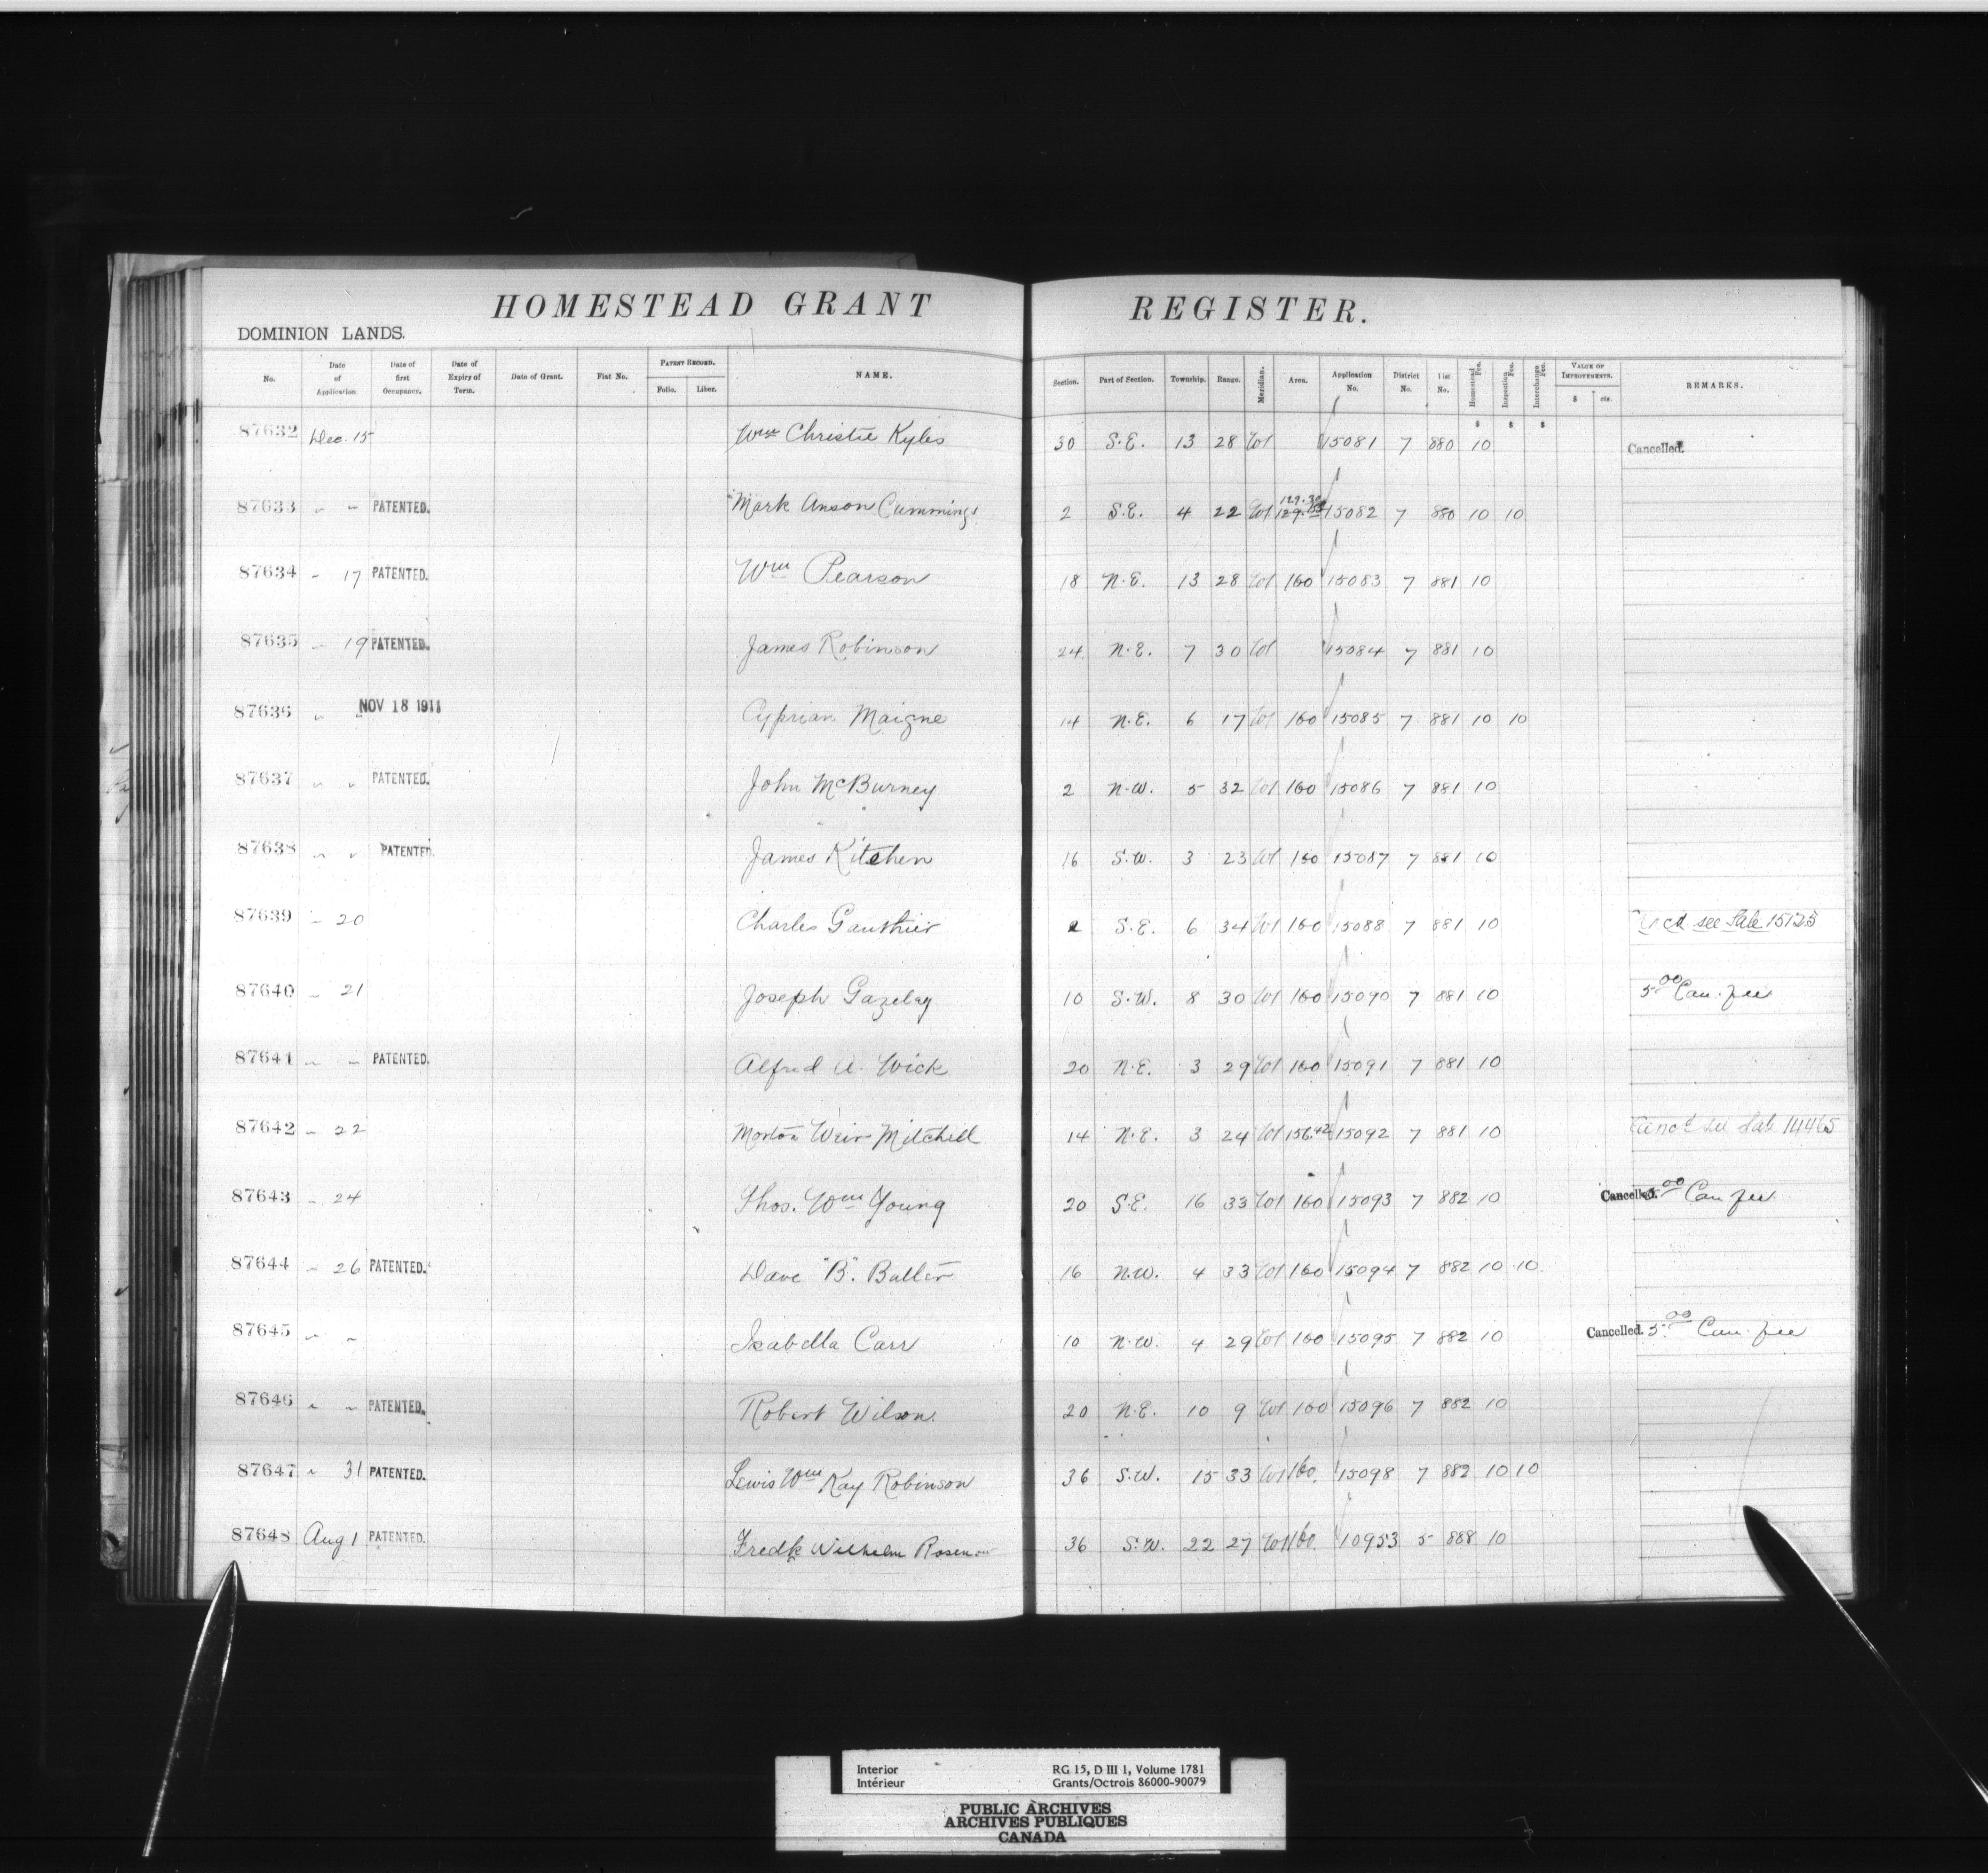 HOMESTEAD GRANT REGISTER.
DOMINION LANDS.
No. Date of Application. Date of first Occupancy. Date of Expiry of Term. Date of Grant. Fiat No. PATENT RECORD. Folio. Liber. NAME. Section. Part of Section. Township. Range. Meridian. Area. Application No. District No. List No. Homestead Fee. Inspection Fee. Interchange Fee. VALUE OF IMPROVEMENTS. $ cts. REMARKS.
$ $ $
87632 Dec. 15 Wm Christie Kyles 30 S.E. 13 28 W1 15081 7 880 10 Cancelled.
87633 " " PATENTED. Mark Anson Cummings 2 S.E. 4 22 W1 129.30 15082 7 880 10 10
87634 " 17 PATENTED. Wm Pearson 18 N.E. 13 28 W1 160 15083 7 881 10
87635 " 19 PATENTED. James Robinson 24 N.E. 7 30 W1 15084 7 881 10
87636 " " NOV 18 1911 Cyprian Maigne 14 N.E. 6 17 W1 160 15085 7 881 10 10
87637 " " PATENTED. John McBurney 2 N.W. 5 32 W1 160 15086 7 881 10
87638 " " PATENTED. James Kitchen 16 S.W. 3 23 W1 160 15087 7 881 10
87639 " 20 Charles Gauthier 2 S.E. 6 34 W1 160 15088 7 881 10 see Sale 15125
87640 " 21 Joseph Gazelay 10 S.W. 8 30 W1 160 15090 7 881 10 5.00 Can. fee
87641 " " PATENTED. Alfred A. Wick 20 N.E. 3 29 W1 160 15091 7 881 10
87642 " 22 Morton Weir Mitchell 14 N.E. 3 24 W1 156.42 15092 7 881 10 Canc'd see Sale 14465
87643 " 24 Thos. Wm Young 20 S.E. 16 33 W1 160 15093 7 882 10 Cancelled. 5.00 Can fee
87644 " 26 PATENTED. Dave "B". Butler 16 N.W. 4 33 W1 160 15094 7 882 10 10
87645 " " Isabella Carr 10 N.W. 4 29 W1 160 15095 7 882 10 Cancelled. 5.00 Can. fee
87646 " " PATENTED. Robert Wilson 20 N.E. 10 9 W1 160 15096 7 882 10
87647 " 31 PATENTED. Lewis Wm Kay Robinson 36 S.W. 15 33 W1 160. 15098 7 882 10 10
87648 Aug 1 PATENTED. Fredk Wilhelm Rosenow 36 S.W. 22 27 W1 160. 10953 5 888 10
Interior RG 15, D III 1, Volume 1781
Intérieur Grants/Octrois 86000-90079
PUBLIC ARCHIVES
ARCHIVES PUBLIQUES
CANADA